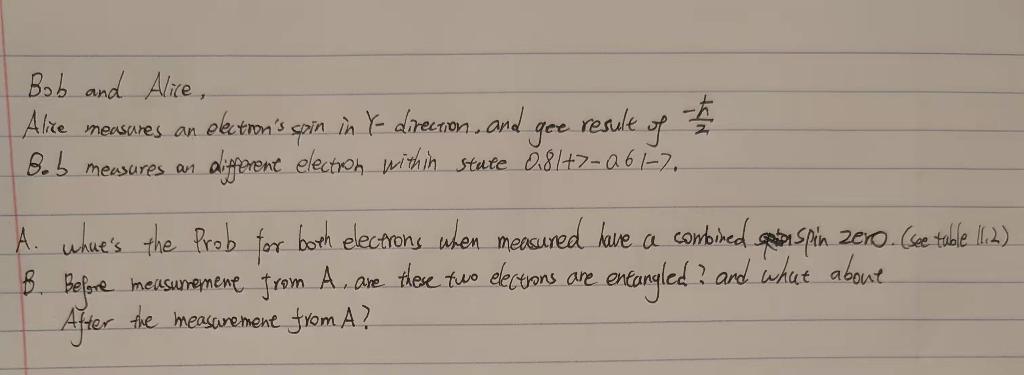 Bob and Alice,
Alice measures an electron's spin in Y-direction, and gee result of -ħ/2
Bob measures an different electron within state 0.8|+> - 0.6|->.
A. what's the Prob for both electrons when measured have a combined spin zero. (see table 11.2)
B. Before measurement from A, are these two electrons are entangled? and what about
After the measurement from A?